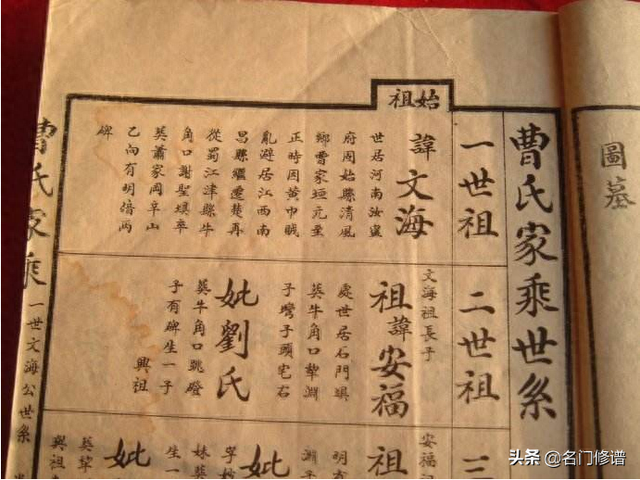 圖墓
曹氏家乘世系
始祖
一世祖
諱文海
世居河南汝寧
府固始縣清風
鄉曹家垣元至
正時因黃巾賊
亂避居江西南
昌縣繼遷楚再
從蜀江津縣牛
角口謝聖壩卒
葬蕭家岡辛山
乙向有明堦兩
碑
二世祖
文海祖長子
祖諱安福
處世居石門壩
葬牛角口犂淵
子灣子頭宅右
妣劉氏
葬牛角口跳磴
子有碑生一子
興祖
三
安福
祖
妣
妣
曹氏家乘
一世文海公世系
头条 @名门修谱